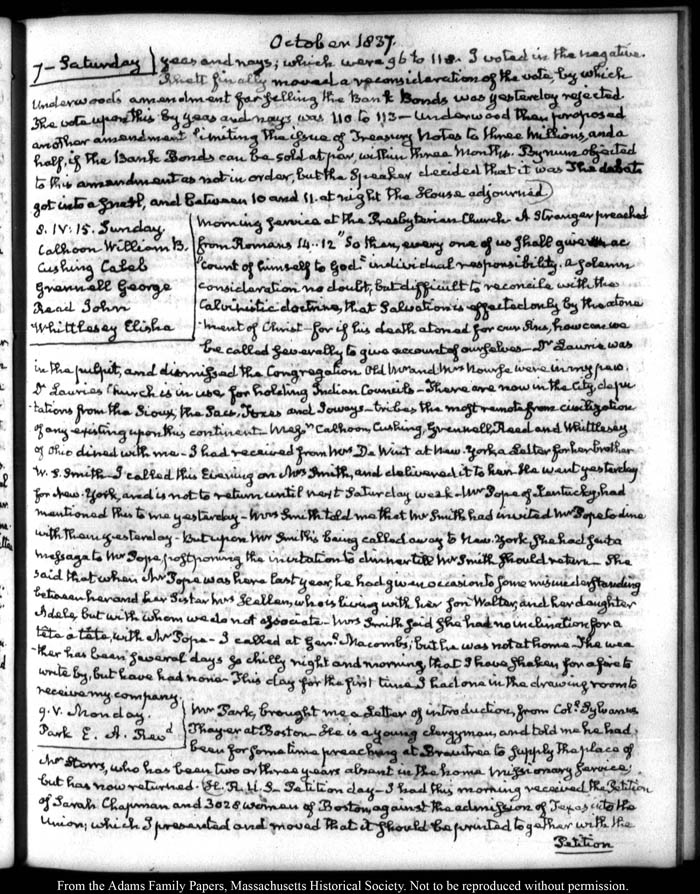 October 1837.
7 – Saturday
yeas and nays; which were 96 to 118. I voted in the negative.
Rhett finally moved a reconsideration of the vote, by which
Underwoods amendment for selling the Bank Bonds was yesterday rejected.
The vote upon this by yeas and nays was 110 to 113 – Underwood then proposed
another amendment limiting the issue of Treasury Notes to three Millions, and a
half, if the Bank Bonds can be sold at par, within three Months. Bynum objected
to this amendment as not in order, but the Speaker decided that it was The debate
got into a snarl, and between 10 and 11. at night the House adjourned
8. IV: 15. Sunday.
Calhoon William B.
Cushing Caleb
Grennell George
Read John
Whittlesey Elisha
Morning service at the Presbyterian Church. A Stranger preached
from Romans 14..12 "So then, every one of us shall give ac
"count of himself to God" individual responsibility. a solemn
consideration no doubt, but difficult to reconcile with the
Calvinistic doctrine, that Salvation is effected only by the atone
-ment of Christ – for if his death atoned for our Sins, how can we
be called severally to give account of ourselves – Dr Laurie was
in the pulpit, and dismissed the Congregation Old Mr and Mrs Nourse were in my pew.
Dr Lauries Church is in use for holding Indian Councils – There are now in the City, depu
-tations from the Sioux, the Sacs, Foxes and Ioways – tribes the most remote from civilization
of any existing upon this continent – Messrs Calhoon, Cushing, Grennell, Reed and Whittlesey
of Ohio dined with me – I had received from Mrs De Wint at New-York, a Letter for her brother
W. S. Smith – I called this Evening on Mrs Smith, and delivered it to her. He went yesterday
for New-York, and is not to return until next Saturday week – Mr Pope of Kentucky, had
mentioned this to me yesterday – Mrs Smith told me that Mr Smith had invited Mr Pope to dine
with them yesterday – But upon Mr Smith's being called away to New-York, she had sent a
message to Mr Pope postponing the invitation to dinner till Mr Smith should return – She
said that when Mr Pope was here last year, he had given occasion to some misunderstanding
between her and her Sister Mrs Hellen, who is living with her son Walter, and her daughter
Adele, but with whom we do not associate – Mrs Smith said she had no inclination for a
tête a tête, with Mr Pope – I called at Genl Macombs, but he was not at home – The wea
-ther has been several days so chilly night and morning, that I have shaken for a fire to
write by, but have had none – This day for the first time I had one in the drawing room to
receive my company.
9. V. Monday.
Park E. A. Revd
Mr Park, brought me a Letter of introduction, from Coll Sylvanus
Thayer at Boston – He is a young clergyman, and told me he had
been for some time preaching at Braintree to supply the place of
Mr Storrs, who has been two or three years absent in the home Missionary Service;
but has now returned. H. R. U. S. Petition day – I had this morning received the Petition
of Sarah Chapman and 3028 women of Boston, against the admission of Texas into the
Union; which I presented and moved that it should be printed together with the
Petition
From the Adams Family Papers, Massachusetts Historical Society. Not to be reproduced without permission.